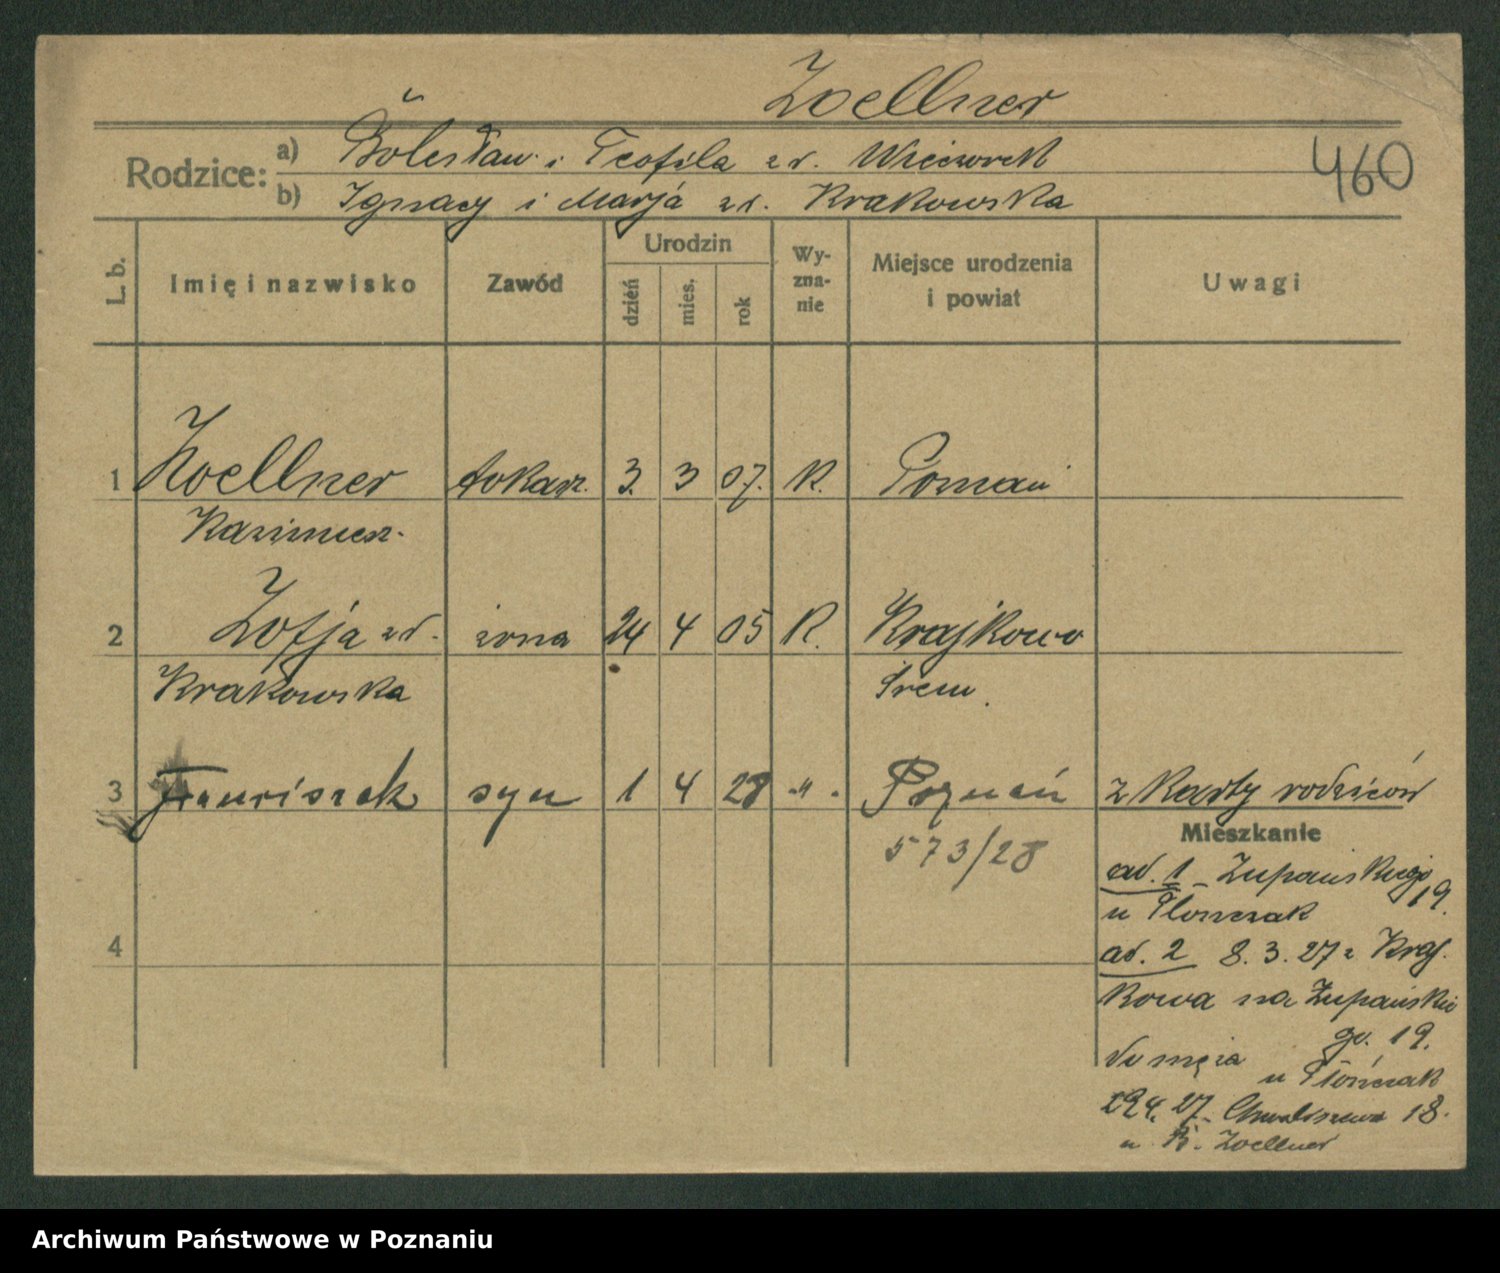 Zoellner
Rodzice: a) Bolesław i Teofila zd. Wieczorek
460
b) Ignacy i Marja zd. Krakowska
L. b. Imię i nazwisko Zawód Urodzin dzień mies. rok Wy- zna- nie Miejsce urodzenia i powiat Uwagi
1 Zoellner tokarz. 3. 3 07. K. Poznań
Kazimierz.
2 Zofja zd. żona 24 4 05 K. Krajkowo
Krakowska Śrem.
3 Franciszek syn 1 4 28 " Poznań z karty rodziców
573/28 Mieszkanie
ad. 1 - Żupańskiego
19.
u Płończak
4
ad. 2 8.3.27 z Kraj-
kowa na Żupańskie
go. 19.
do męża u Płończak
29.4.27 - Chwaliszewo 18.
u B. Zoellner
Archiwum Państwowe w Poznaniu